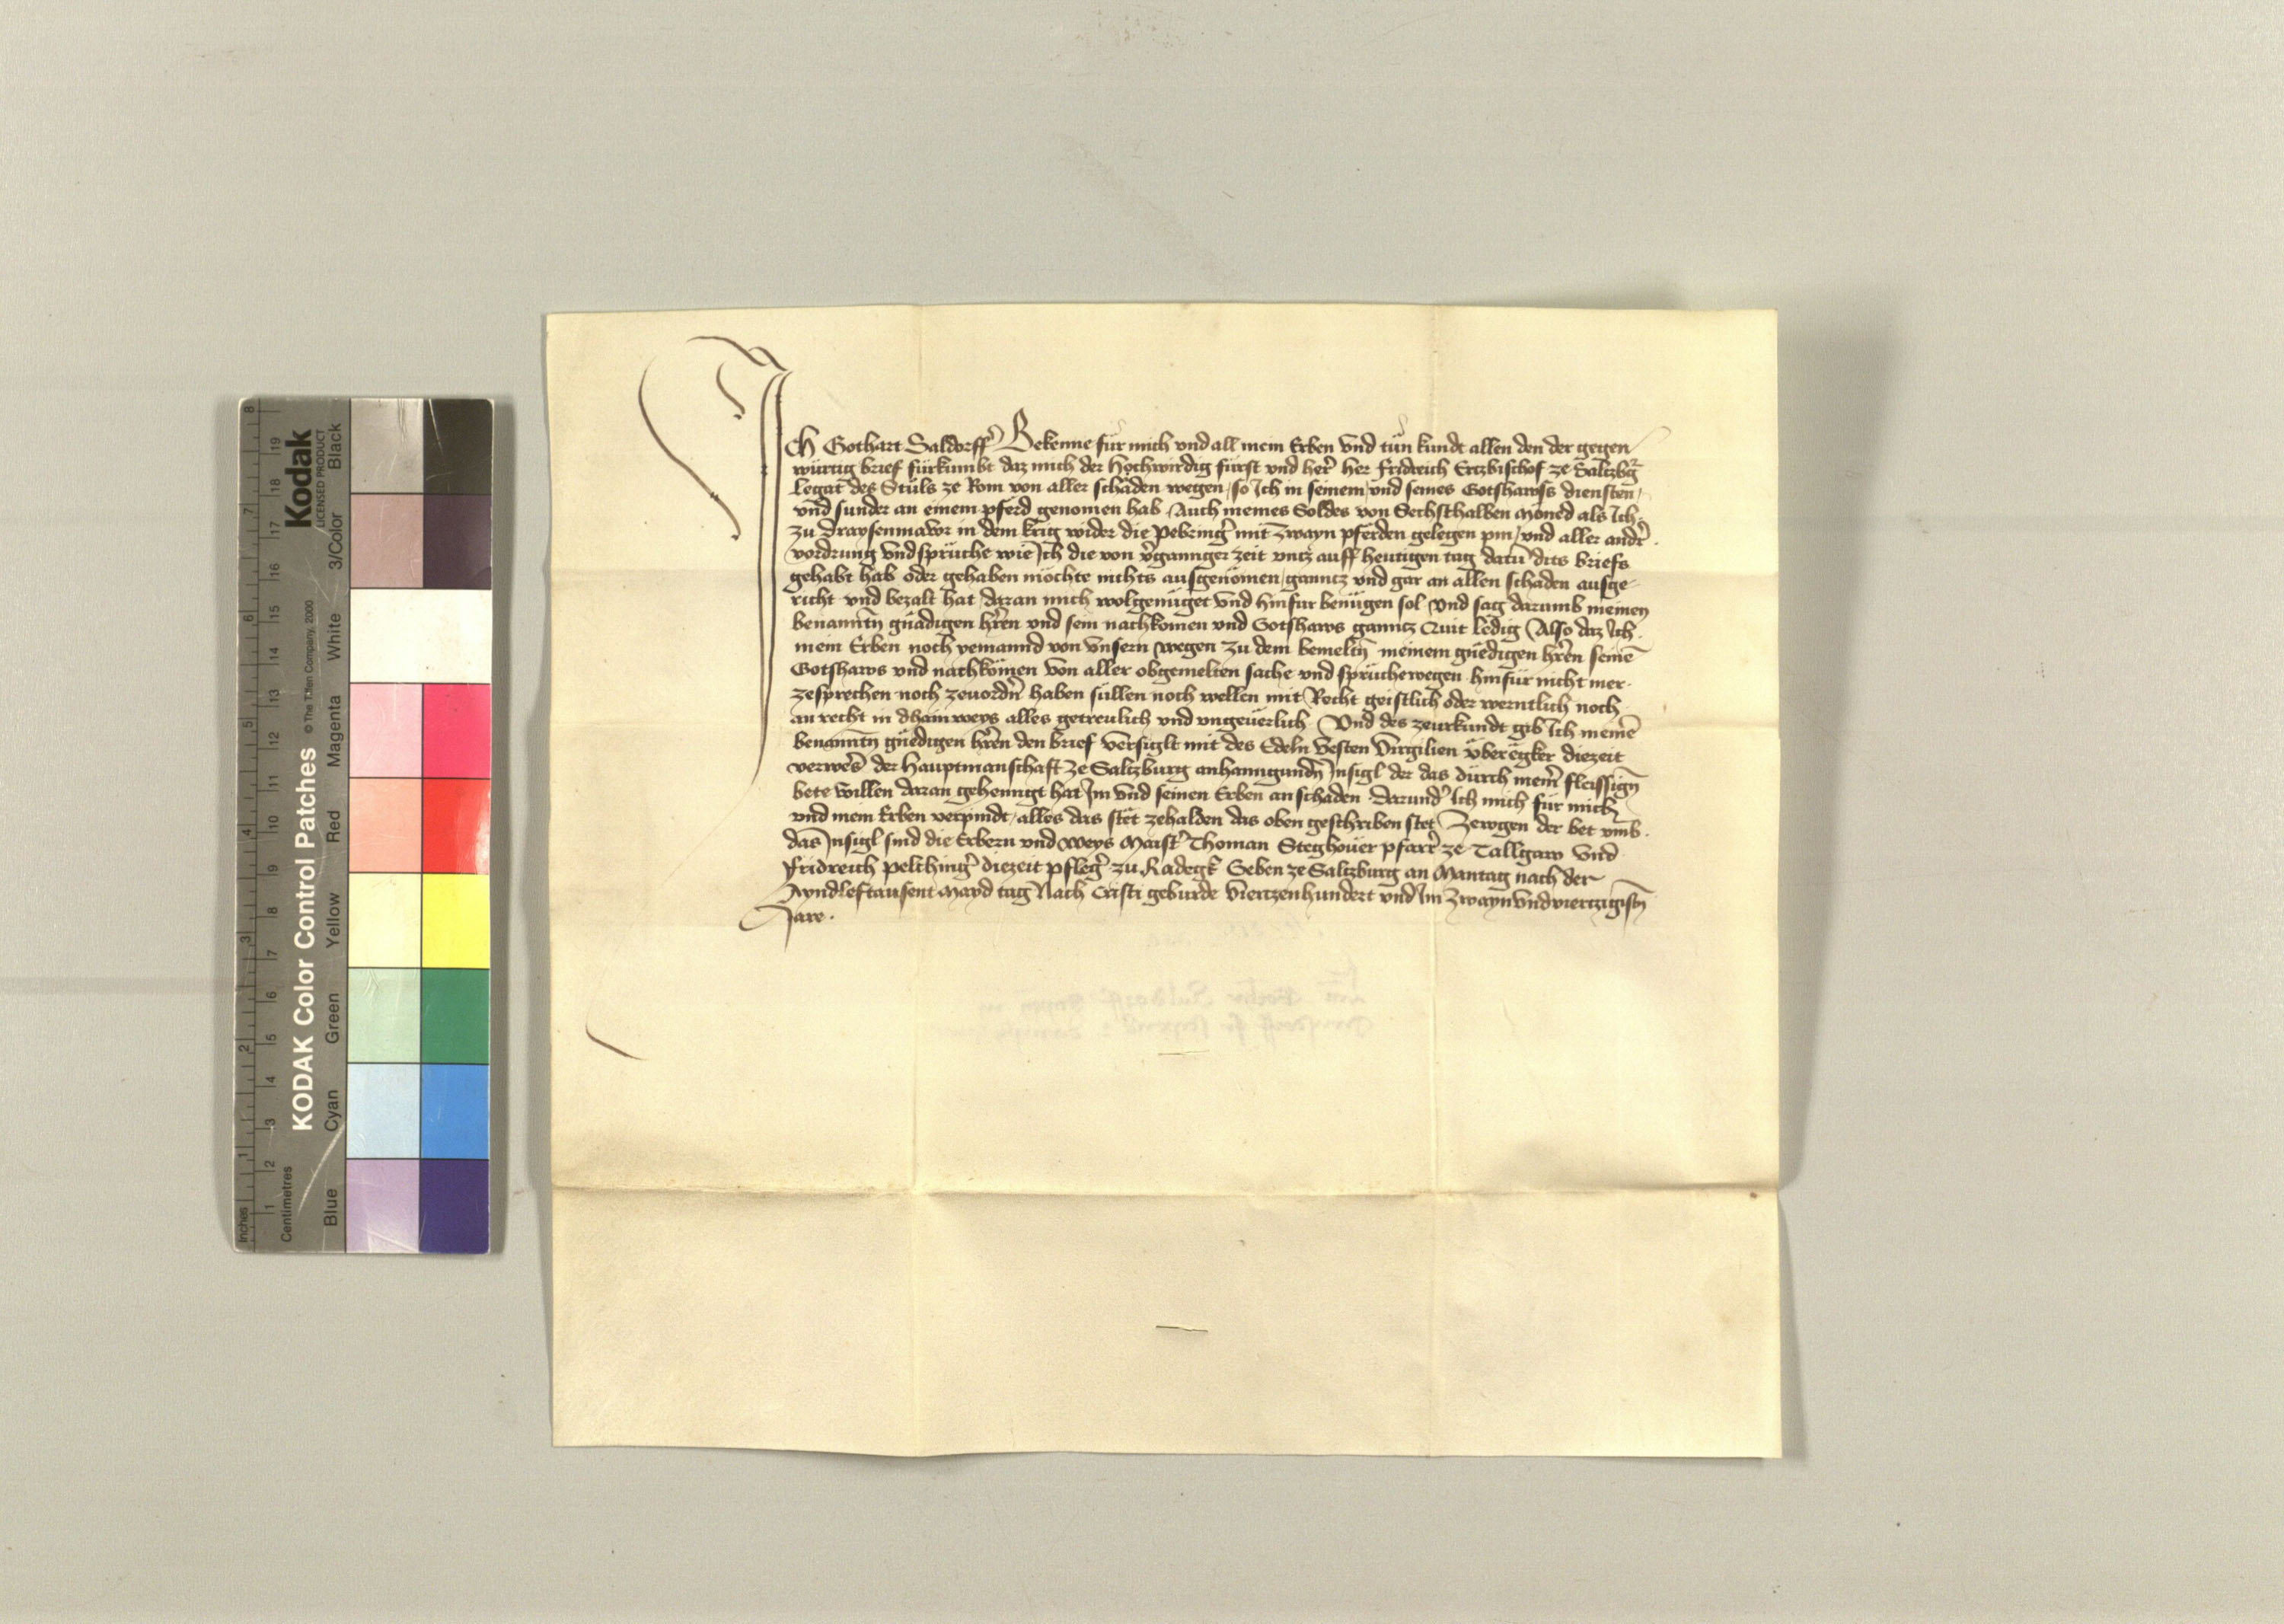 Ich Gothart Saldorffer Bekenne für mich vnd all mein Erben vnd tün kundt allen den der gegen
würtig brief fürkumbt daz mich der Hochwirdig fürst vnd her her fridreich Ertzbischof ze Saltzbg
legat des Stüls ze Rom von aller schäden wegen so Ich in seinem vnd seines Gotshawss diensten
vnd sunder an einem pferd genomen hab Auch meines Soldes von Sechsthalben moned als Ich
zu Draysenmawr in dem krig wider die Pebringer mit zwayn pferden gelegen pin vnd aller ander
vordrung vnd sprüche wie Ich die von verganngner zeit vntz auff heutigen tag datu dits briefs
gehabt hab oder gehaben möchte nichts ausgenomen ganncz vnd gar an allen schäden ausge-
richt vnd bezalt hat daran mich wolgenüget vnd hinfur benügen sol Vnd sag darumb meinen
benanntn gnädigen hern vnd sein nachkomen vnd Gotshaws ganncz Quit ledig Also daz Ich
mein Erben noch yemannd von vnsern wegen zu dem bemeltn meinem gnedigen hern seine
Gotshaws vnd nachkömen von aller obgemelten sache vnd sprüche wegen hinfür nicht mer
zesprechen noch zeuordn haben süllen noch wellen mit Recht geistlich oder werntlich noch
an recht in dhain weys alles getreulich vnd vngeuerlich Vnd des zeurkundt gib Ich meine
benanntn gnedigen hern den brief versiglt mit des Edeln Vesten Virgilien überegker diezeit
verwes der Hauptmanschaft ze Saltzburg anhanngundn Insigl der das durch meiner fleissign
bete willen daran gehenngt hat Im vnd seinen Erben an schaden darunder Ich mich für mich
vnd mein Erben verpindt alles das stet zehalden das oben geschriben stet Zewgen der bet vmb
das Insigl sind die Erbern vnd weys Maister Thoman Steghöuer pfarrer ze Tallgaw vnd
fridreich pelchinger diezeit pfleger zu Radegk Geben ze Saltzburg an Mantag nach der
Ayndleftausent mayd tag Nach Cristi geburde Viertzenhundert vnd Im zwaynvndviertzigistn
Jare
KODAK Color Control Patches
© The Tiffen Company, 2000
Kodak
LICENSED PRODUCT
Inches
Centimetres
1 2 3 4 5 6 7 8
1 2 3 4 5 6 7 8 9 10 11 12 13 14 15 16 17 18 19
Blue Cyan Green Yellow Red Magenta White 3/Color Black